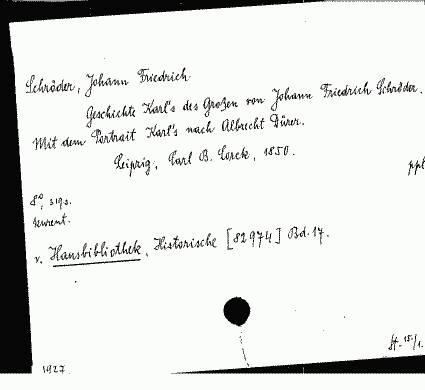 Schröder, Johann Friedrich
Geschichte Karl's des Großen von Johann Friedrich Schröder.
Mit dem Portrait Karl's nach Albrecht Dürer.
Leipzig, Carl B. Lorck, 1850.
ppb
8°, 319s.
v. Hausbibliothek, Historische [82974] Bd. 17.
1927